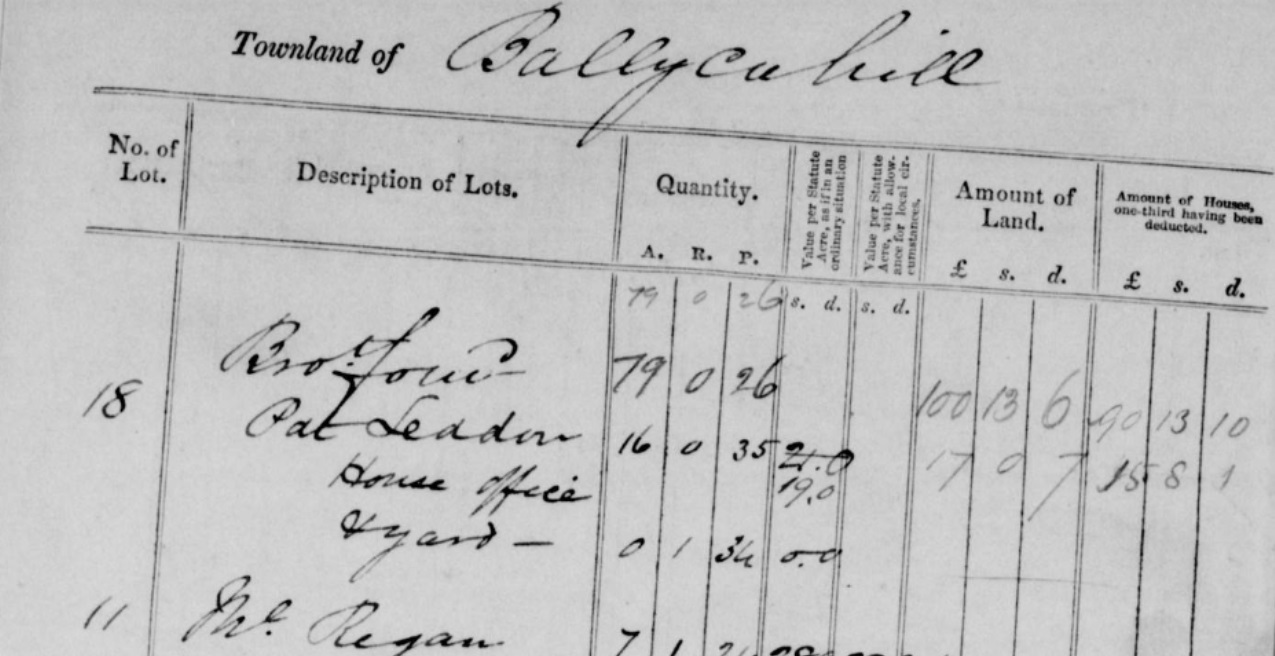 Townland of Ballycahill
No. of Lot.
Description of Lots.
Quantity.
A. R. P.
Value per Statute Acre, as if in an ordinary situation
s. d.
Value per Statute Acre, with allowance for local circumstances.
s. d.
Amount of Land.
£ s. d.
Amount of Houses, one-third having been deducted.
£ s. d.
79 0 26
Brot. Forwd 79 0 26 100 13 6 90 13 10
18 Pat Leddon 16 0 35 21.0 17 0 7 15 8 1
House office 19.0
& yard — 0 1 34 0.0
11 Ml. Regan 7 1